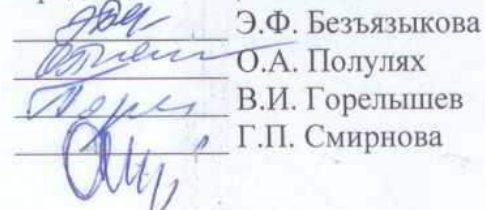 Э.Ф. Безъязыкова
О.А. Полулях
В.И. Горелышев
Г.П. Смирнова